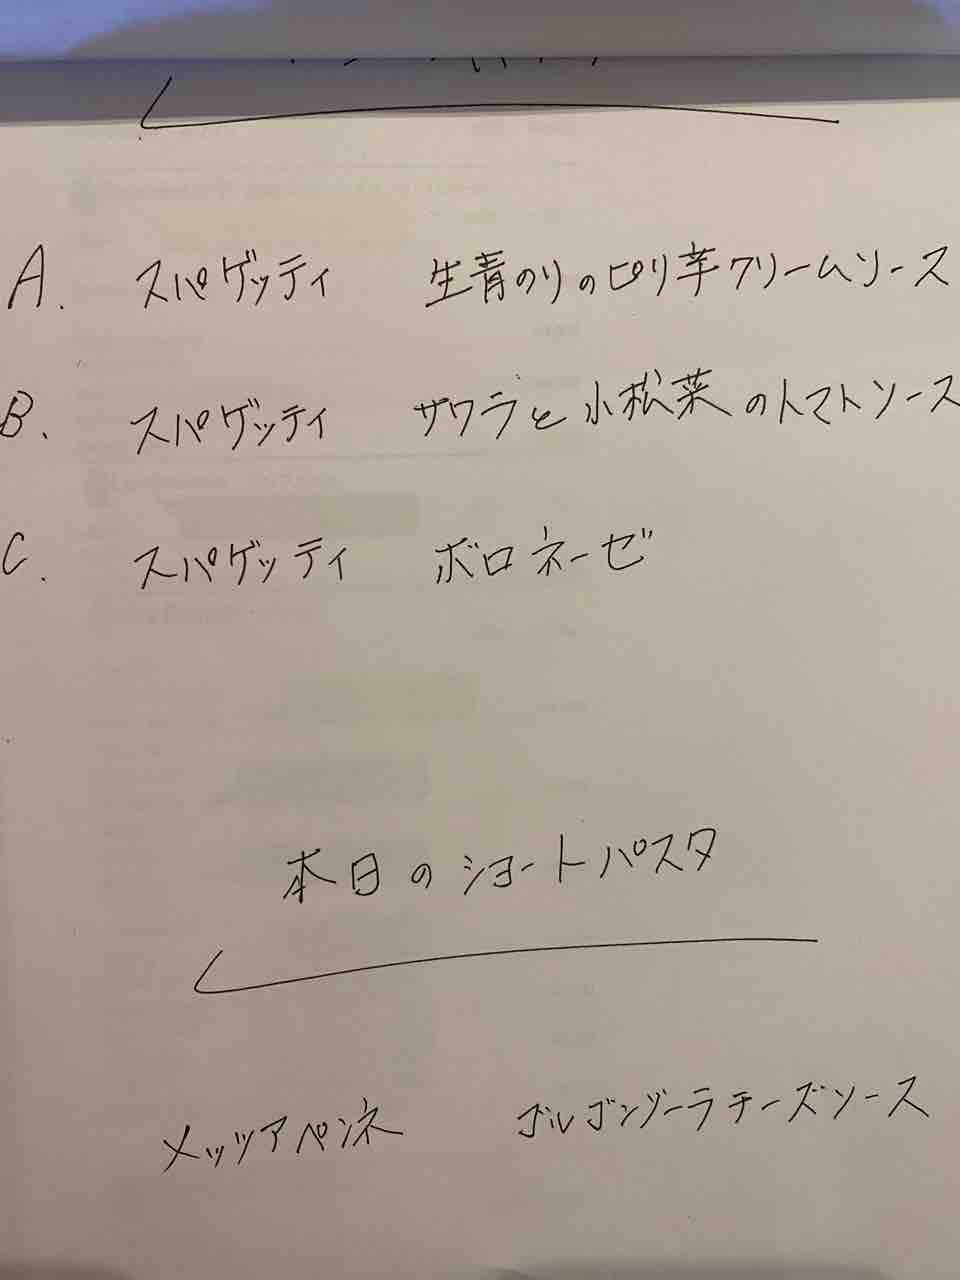 A. スパゲッティ 生青のりのピリ辛クリームソース
B. スパゲッティ サワラと小松菜のトマトソース
C. スパゲッティ ボロネーゼ
本日のショートパスタ
メッツアペンネ ゴルゴンゾーラチーズソース